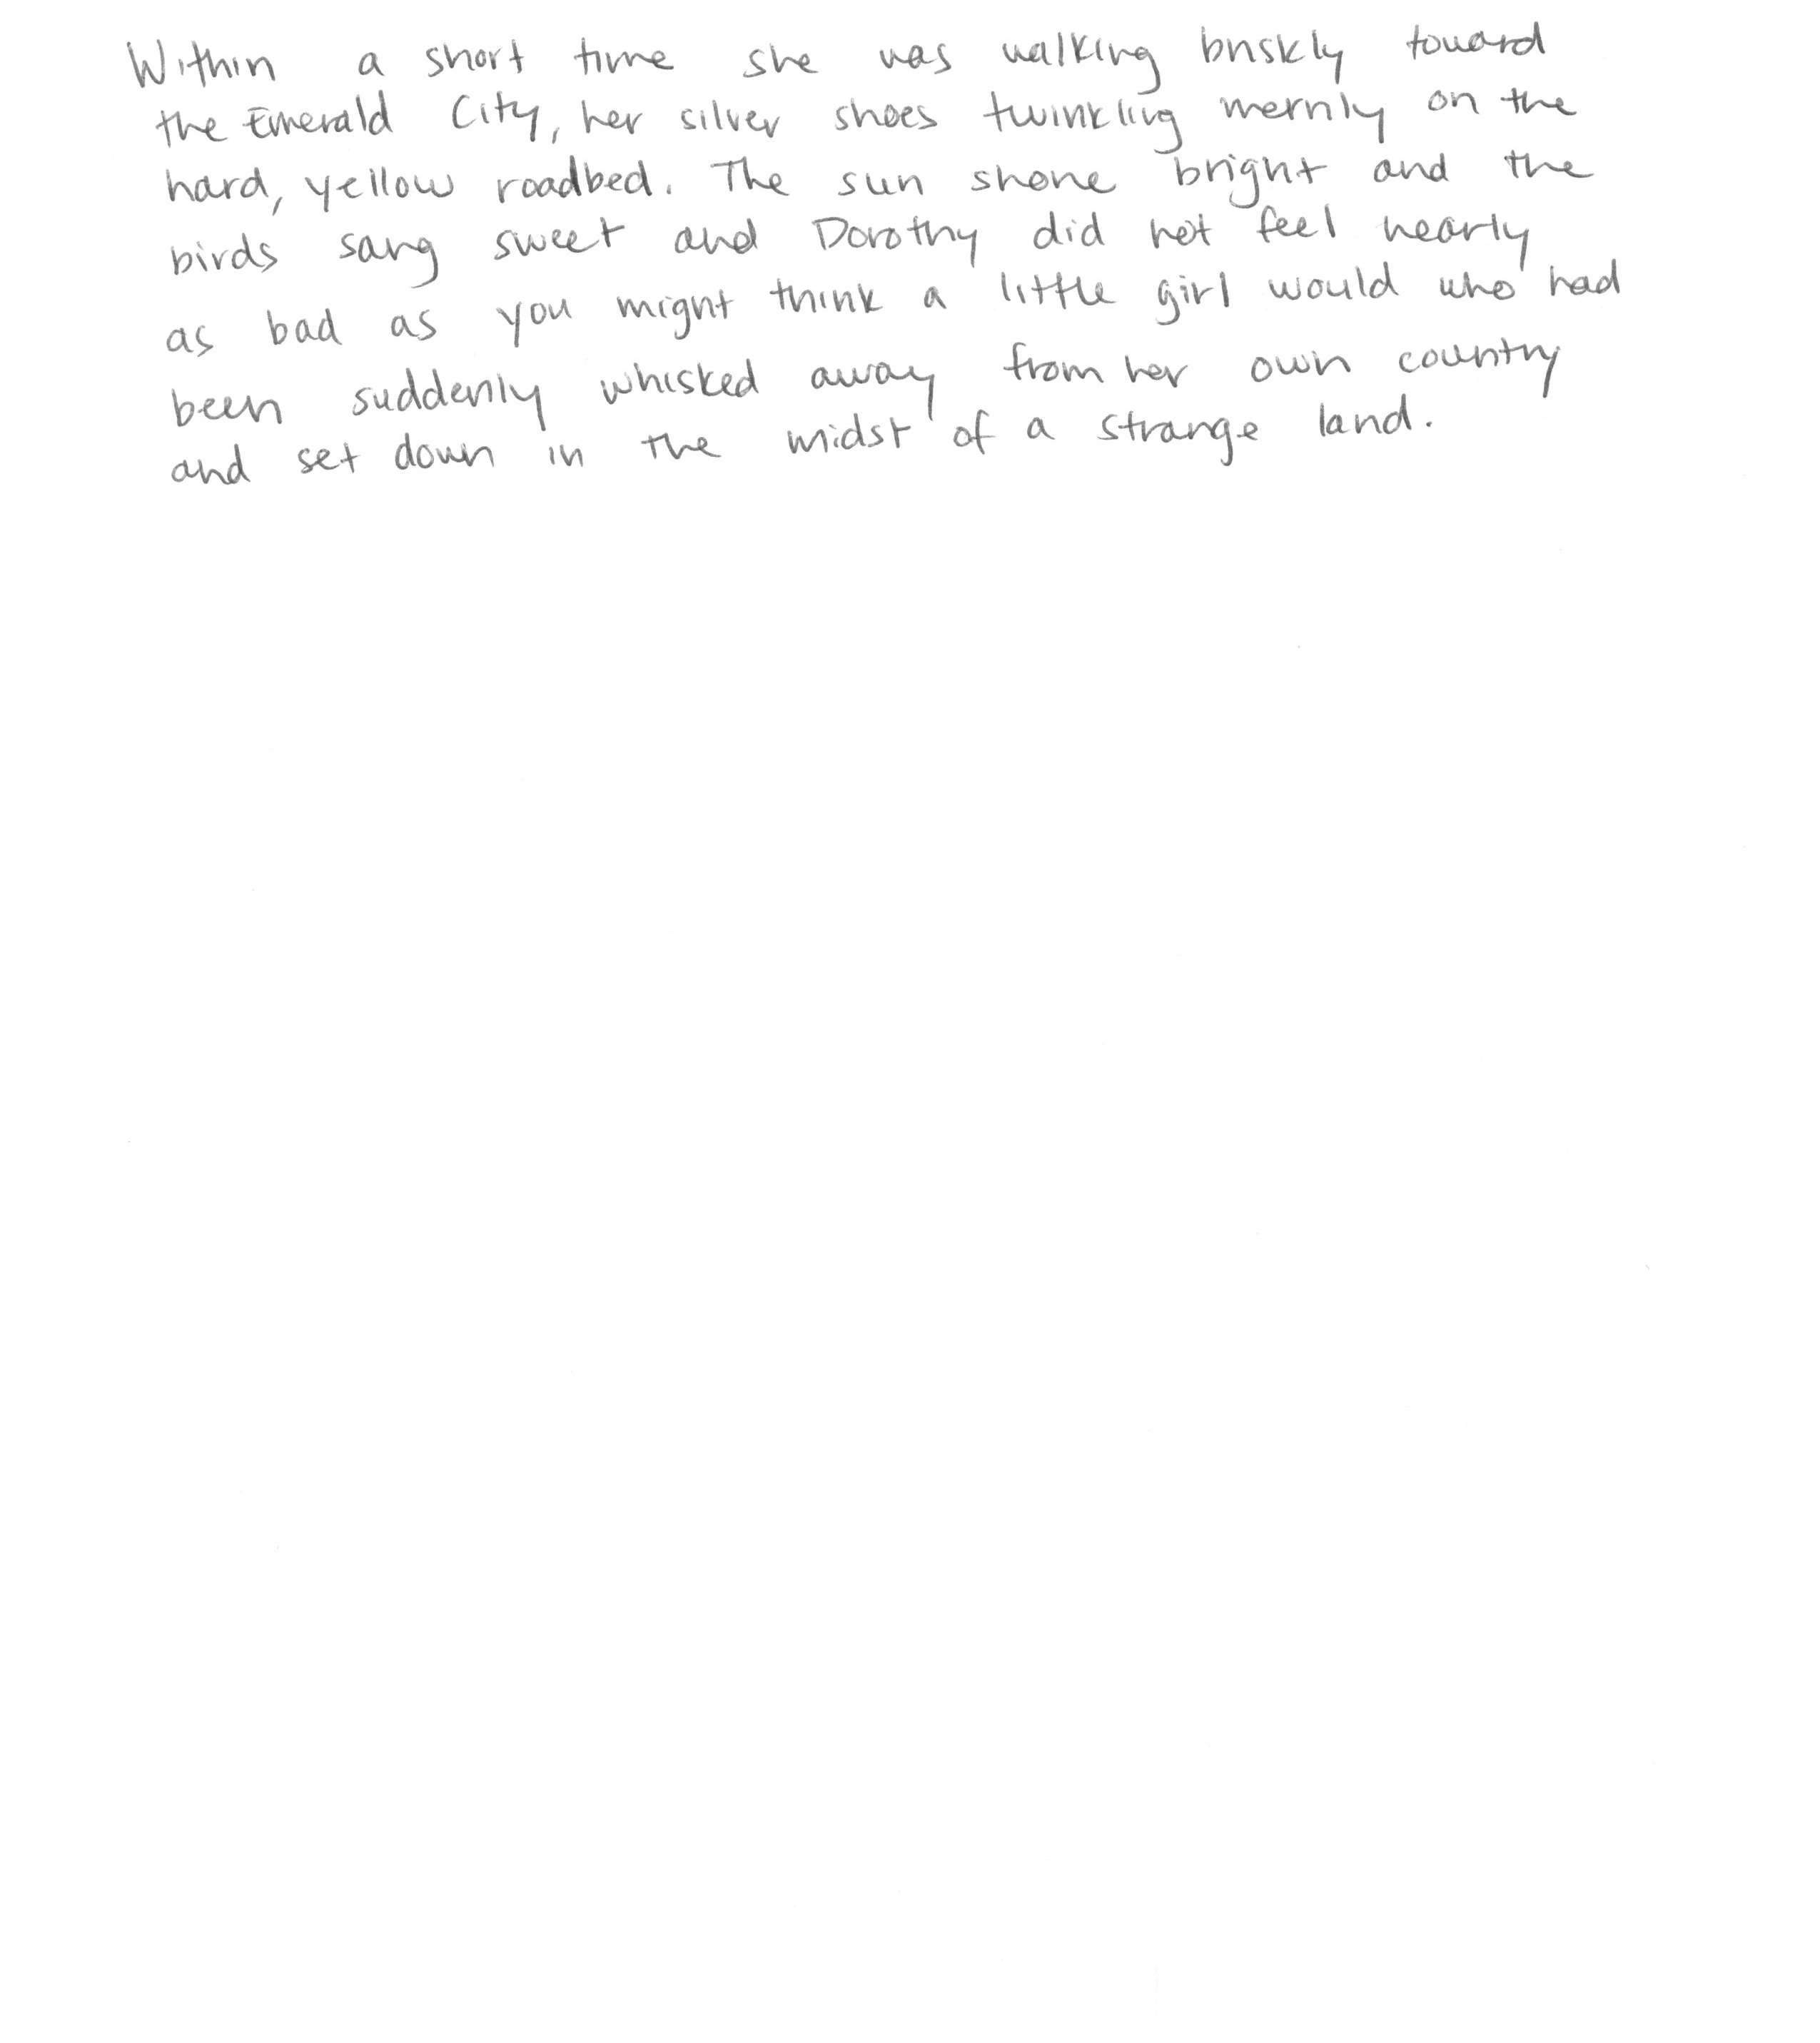 Within a short time she was walking briskly toward
the Emerald City, her silver shoes twinkling merrily on the
hard, yellow roadbed. The sun shone bright and the
birds sang sweet and Dorothy did not feel nearly
as bad as you might think a little girl would who had
been suddenly whisked away from her own country
and set down in the midst of a strange land.